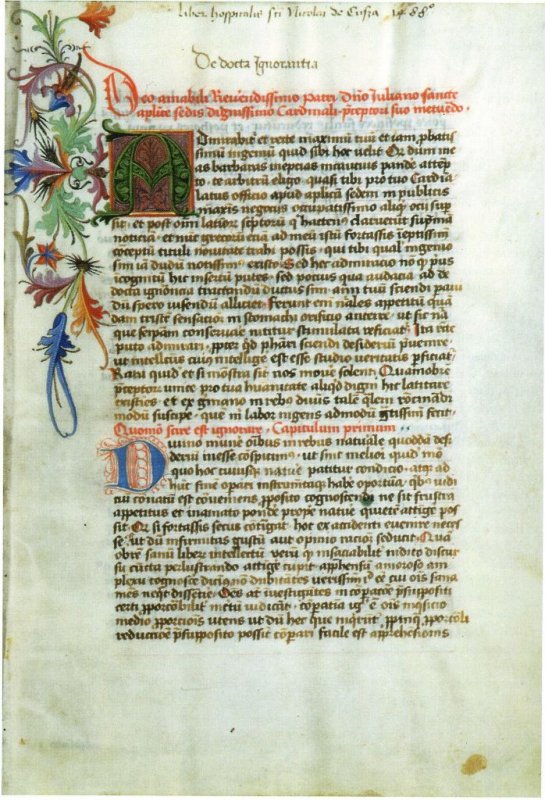 liber hospitalis sti Nicolai de Cusza 1488º
De docta Ignorantia
Deo amabili Reverendissimo Patri dno Iuliano sancte
aplice sedis dignissimo Cardinali preceptori suo metuendo
Admirabit et recte maximu tuu et iam pbatis
simu ingeniu quid sibi hoc velit
as barbaras ineptias incautius pande attep
to te arbitru eligo quasi tibi pro tuo Cardia
latus officio apud aplica sedem in publicis
maxis negocus occupatissimo aliqd ocii sup
sit et post oim latior septoru q hacten9 claruerut supma
noticia et nuc grecoru
coceptu tituli novitate trahi possis qui tibi qual ingenio
sim ia dudu notissim9 existo Sed hec admiratio
icognitu hic insertu putes sed pocius qua audacia ad de
docta ignoncia tractandu ductus sim aim tuu sciendi pavi
du spero visendu alliciet Ferunt em nales appetitu qua
dam triste sensacioe in stomachi orificio anteire ut sic na
que seipam conservare nititur stimulata reficiat Ita recte
puto admirari ppter qd phari sciendi desideriu pvenire
ut intellectus cui9 intellige est esse studio veritatis pficiat
Rara quid et si mostra sit nos movere solent Quamobre
preceptor unice pro tua huanitate aliqd digni hic latitare
existies et ex gmano in reb9 divis tale qlem rociadi
modu suscipe que m labor ingens admodu gtissim fecit
Quomo scire est ignorare Capitulum primum
Divino mune oibus in rebus naturale quodda desi
deriu inesse cospitim9 ut sint melior quid mo
quo hoc cuiusq nature patitur condicio atq ad
huc fine opari instrumetaq habe oportua qb9 iudi
tiu conatu est conveniens pposito cognoscendi ne sit frustra
appetitus et in amato ponde prope nature quiete attige pos
sit Qr si fortassis secus cotigat hoc ex accidenti evenire neces
se ut du infirmitas gustu aut opinio racioe seducit Qua
obre sanu liber intellectu veru q insaciabilit indito discur
su cucta perlustrando attige cupit apphensu amoroso am
plexu cognosce dicim9 no dubitates verissim
mes neqt dissetire Oes at ivestigates in copatoe psuppositi
certi pporcoabilit icertu iudicat copatia igr e ois inqsicio
medio pporciois utens ut du hec que inqrut ppinq pporcoali
reductioe psupposito possit copari facile est apprehesionis